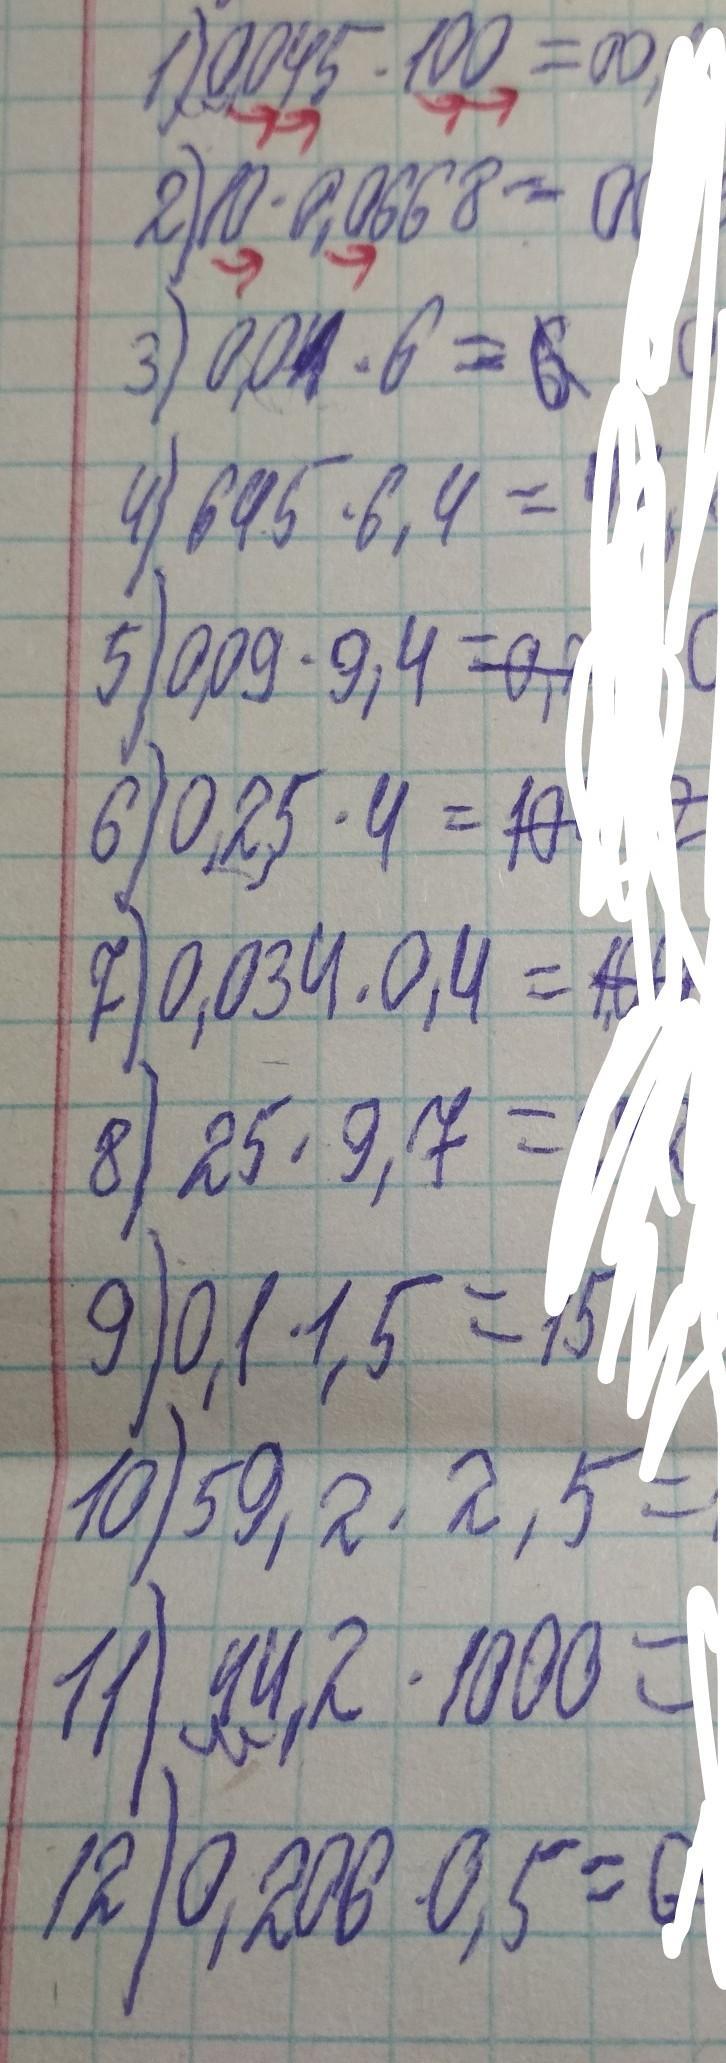 1) 0,045 · 100 = 00,
2) 10 · 0,0668 = 00
3) 0,04 · 6 =
4) 645 · 6,4 =
5) 0,09 · 9,4 = 0,
6) 0,25 · 4 = 10
7) 0,034 · 0,4 =
8) 25 · 9,7 =
9) 0,1 · 1,5 = 15
10) 59,2 · 2,5 =
11) 44,2 · 1000 =
12) 0,206 · 0,5 =